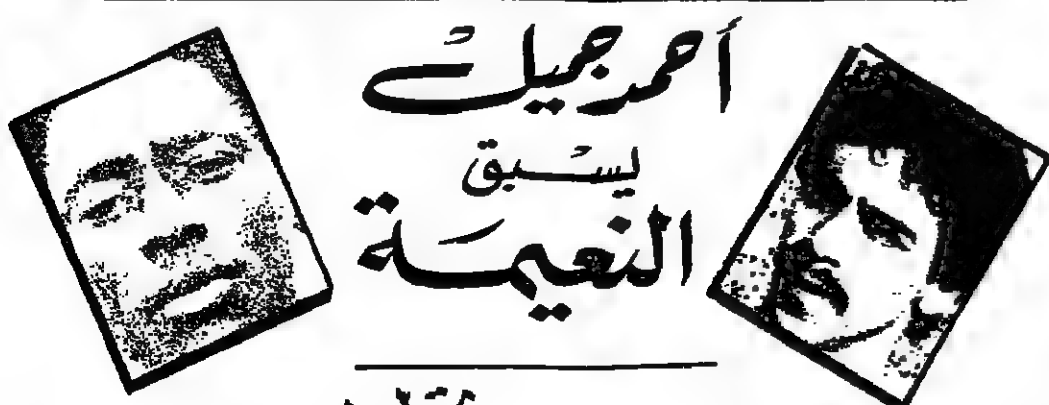 أحمد جميل
يسبق
النعيمة